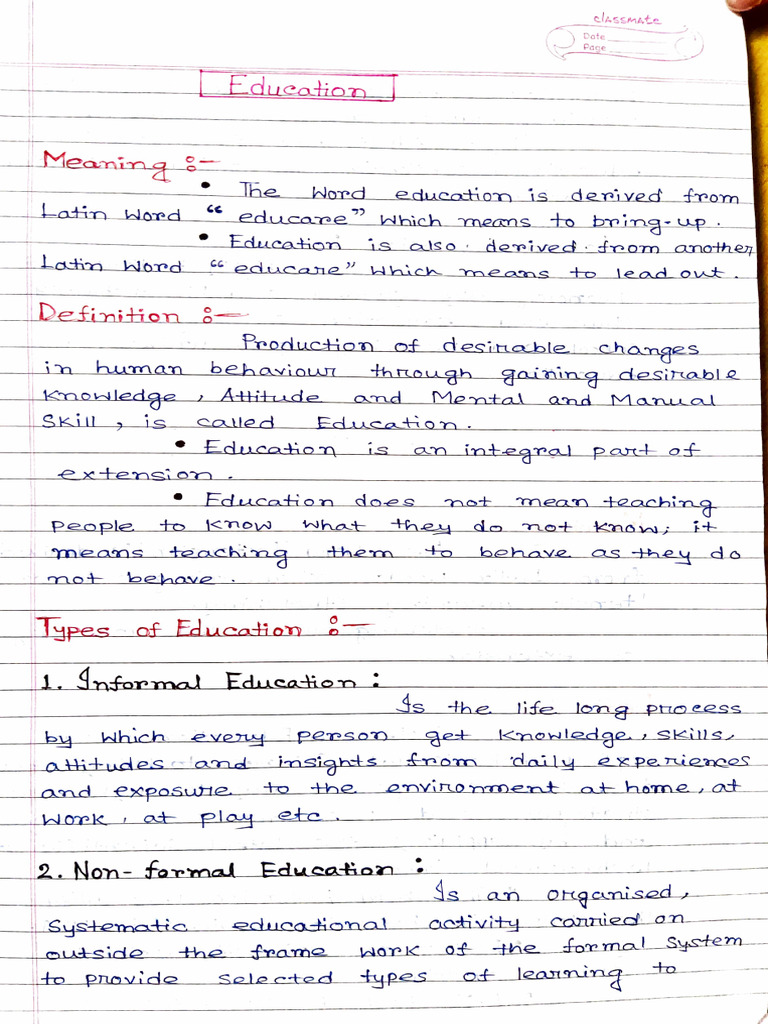 classmate
Date
Page
Education
Meaning :-
• The word education is derived from
Latin word “educare” which means to bring-up.
• Education is also derived from another
Latin word “educare” which means to lead out.
Definition :-
Production of desirable changes
in human behaviour through gaining desirable
knowledge, Attitude and Mental and Manual
skill, is called Education.
• Education is an integral part of
extension.
• Education does not mean teaching
people to know what they do not know; it
means teaching them to behave as they do
not behave.
Types of Education :-
1. Informal Education :
Is the life long process
by which every person get knowledge, skills,
attitudes and insights from daily experiences
and exposure to the environment at home, at
work, at play etc.
2. Non-formal Education :
Is an organised,
systematic educational activity carried on
outside the frame work of the formal system
to provide selected types of learning to